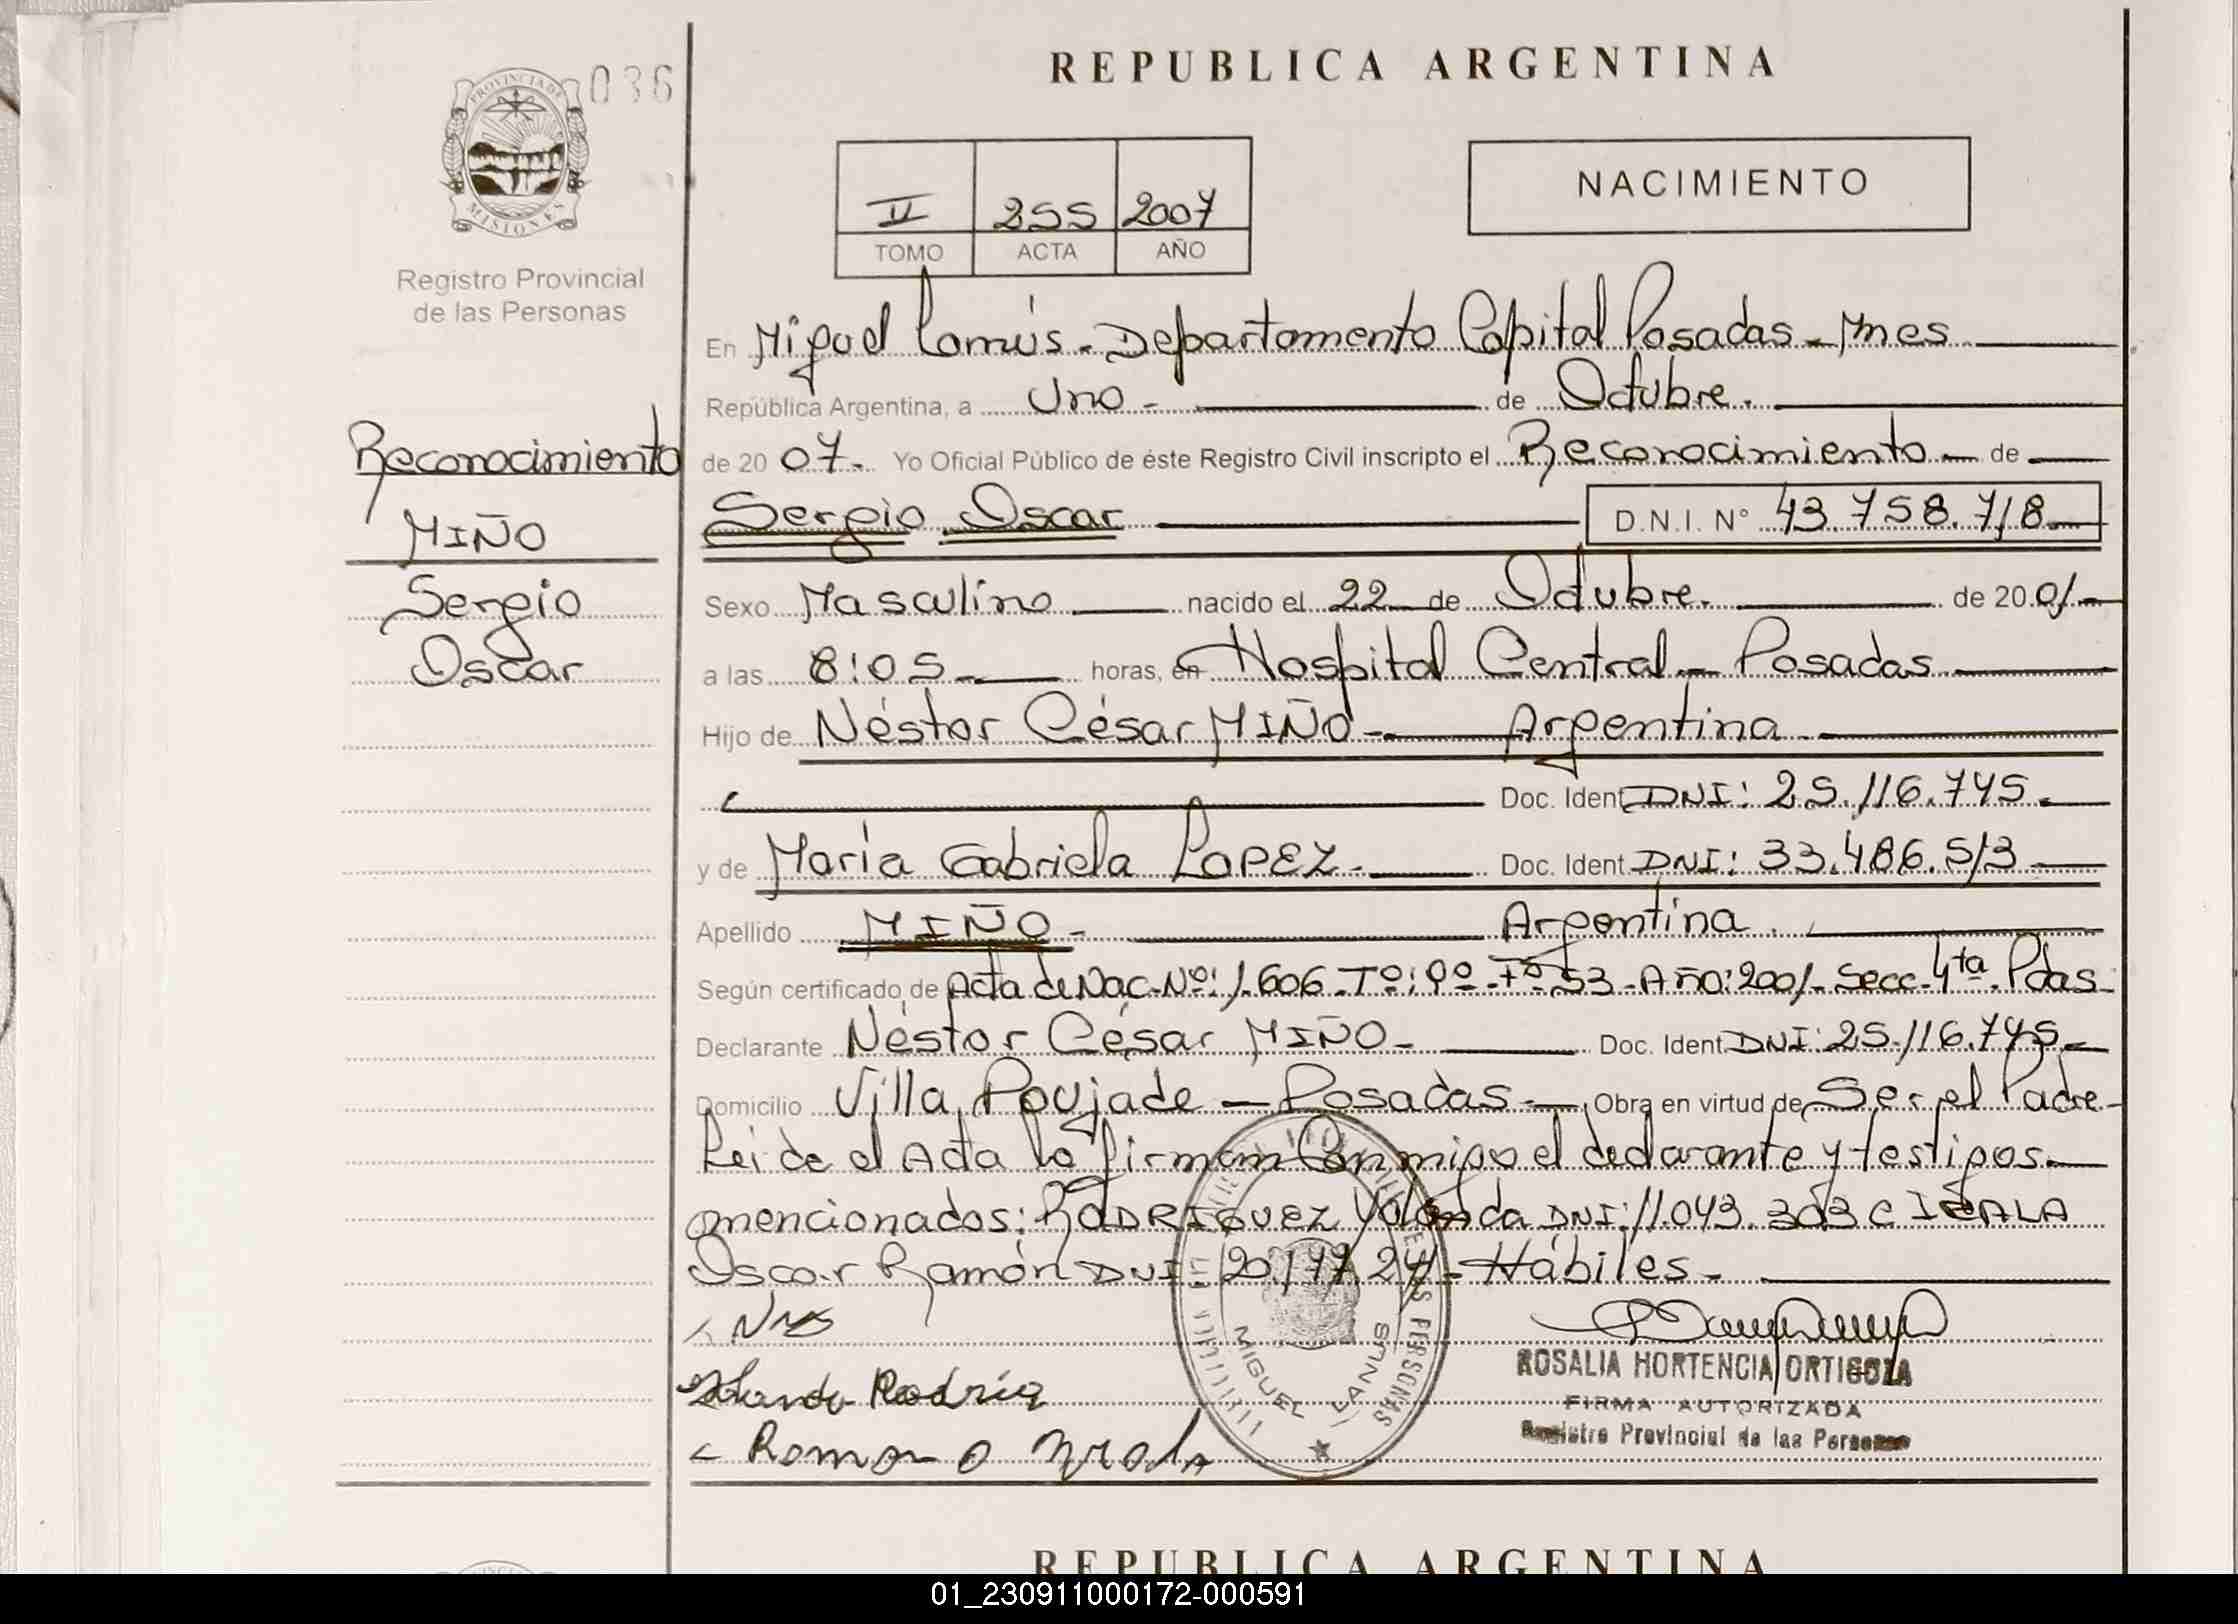 REPUBLICA ARGENTINA
036
PROVINCIA DE
MISIONES
Registro Provincial
de las Personas
II 255 2007
TOMO ACTA AÑO
NACIMIENTO
En Miguel Lanús - Departamento Capital Posadas - Mnes
República Argentina, a Uno - de Octubre.
Reconocimiento
de 20 07. Yo Oficial Público de éste Registro Civil inscripto el Reconocimiento - de
MIÑO
Sergio Oscar D.N.I. N° 43.758.718
Sergio
Sexo Masculino nacido el 22 de Octubre. de 20 01-
Oscar
a las 8:05 horas, en Hospital Central - Posadas
Hijo de Néstor César MIÑO - Argentina
Doc. Ident DNI: 25.116.745.
y de María Gabriela LOPEZ. Doc. Ident DNI: 33.486.513
Apellido MIÑO - Argentina.
Según certificado de Acta de Nac-Nº: 1.606-Tº: 9º-Fº 53-Año: 2001-Secc-4ta-Pdas-
Declarante Néstor César MIÑO - Doc. Ident DNI: 25.116.745
Domicilio Villa Poujade - Posadas - Obra en virtud de Ser el Padre
Leída el Acta la firman Conmigo el declarante y testigos
mencionados: RODRIGUEZ Yolanda DNI: 11.043.303 C
Oscar Ramón DNI - Hábiles -
MIGUEL LANUS
PERSONAS
ROSALIA HORTENCIA ORTIGOZA
FIRMA AUTORIZADA
Registro Provincial de las Personas
REPUBLICA ARGENTINA
01_230911000172-000591